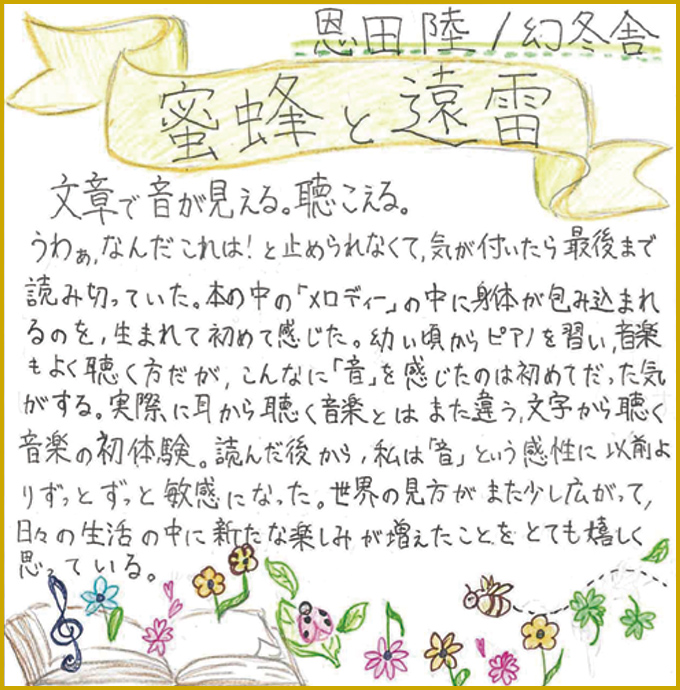 恩田陸/幻冬舎
蜜蜂と遠雷
文章で音が見える。聴こえる。
うわぁ、なんだこれは!と止められなくて、気が付いたら最後まで
読み切っていた。本の中の「メロディー」の中に身体が包み込まれ
るのを、生まれて初めて感じた。幼い頃からピアノを習い、音楽
もよく聴く方だが、こんなに「音」を感じたのは初めてだった気
がする。実際に耳から聴く音楽とはまた違う、文字から聴く
音楽の初体験。読んだ後から、私は「音」という感性に以前よ
りずっとずっと敏感になった。世界の見方がまた少し広がって、
日々の生活の中に新たな楽しみが増えたことをとても嬉しく
思っている。